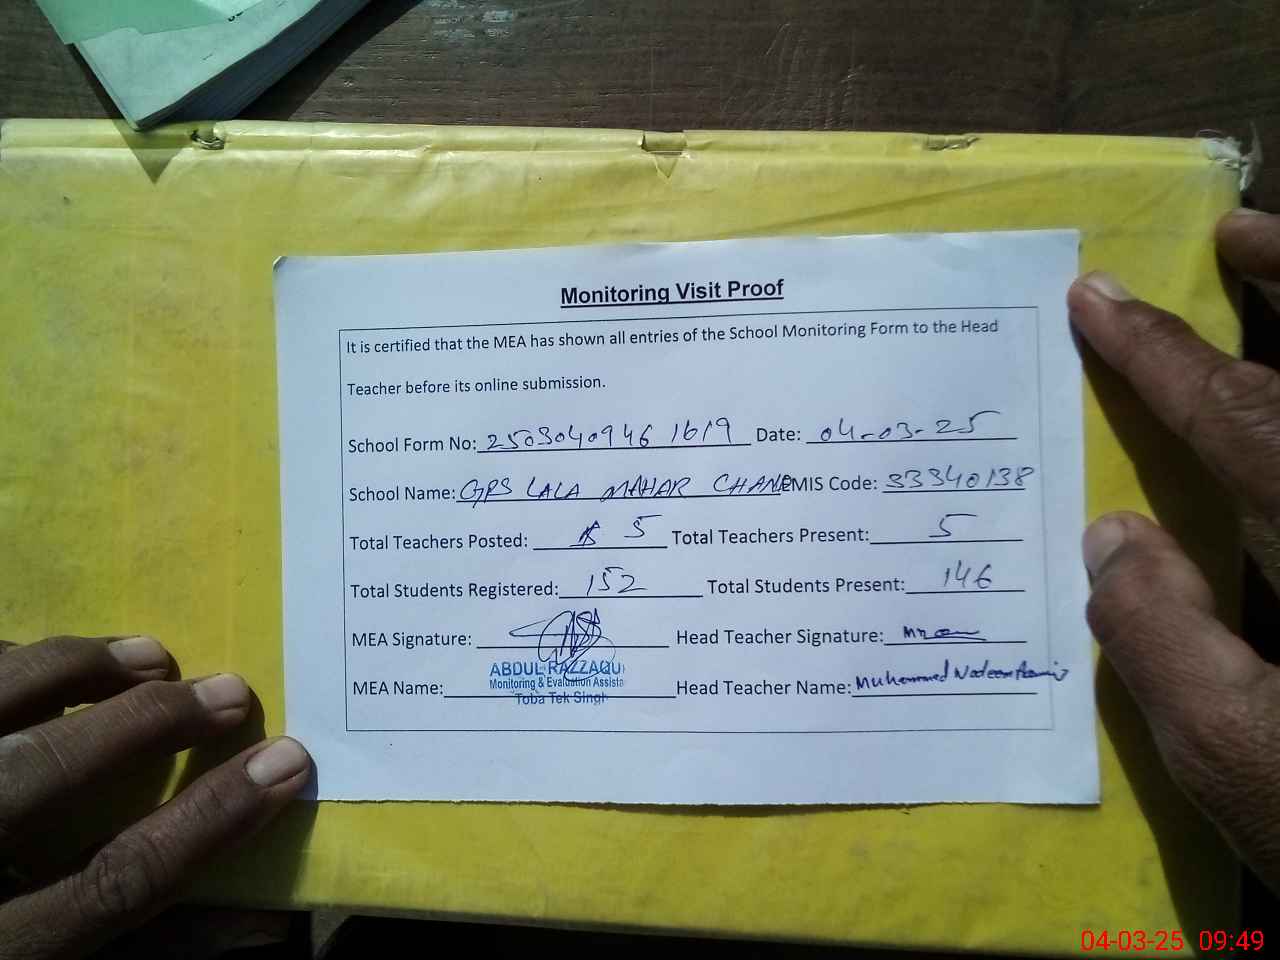 Monitoring Visit Proof
It is certified that the MEA has shown all entries of the School Monitoring Form to the Head
Teacher before its online submission.
School Form No: 2503040946 1619 Date: 04-03-25
School Name: GPS LALA MAHAR CHAND EMIS Code: 33340138
Total Teachers Posted: 5 Total Teachers Present: 5
Total Students Registered: 152 Total Students Present: 146
MEA Signature: Head Teacher Signature:
ABDUL RAZZAQU
Monitoring & Evaluation Assista
MEA Name: Head Teacher Name: Muhammad Nadeem
Toba Tek Singh
04-03-25 09:49